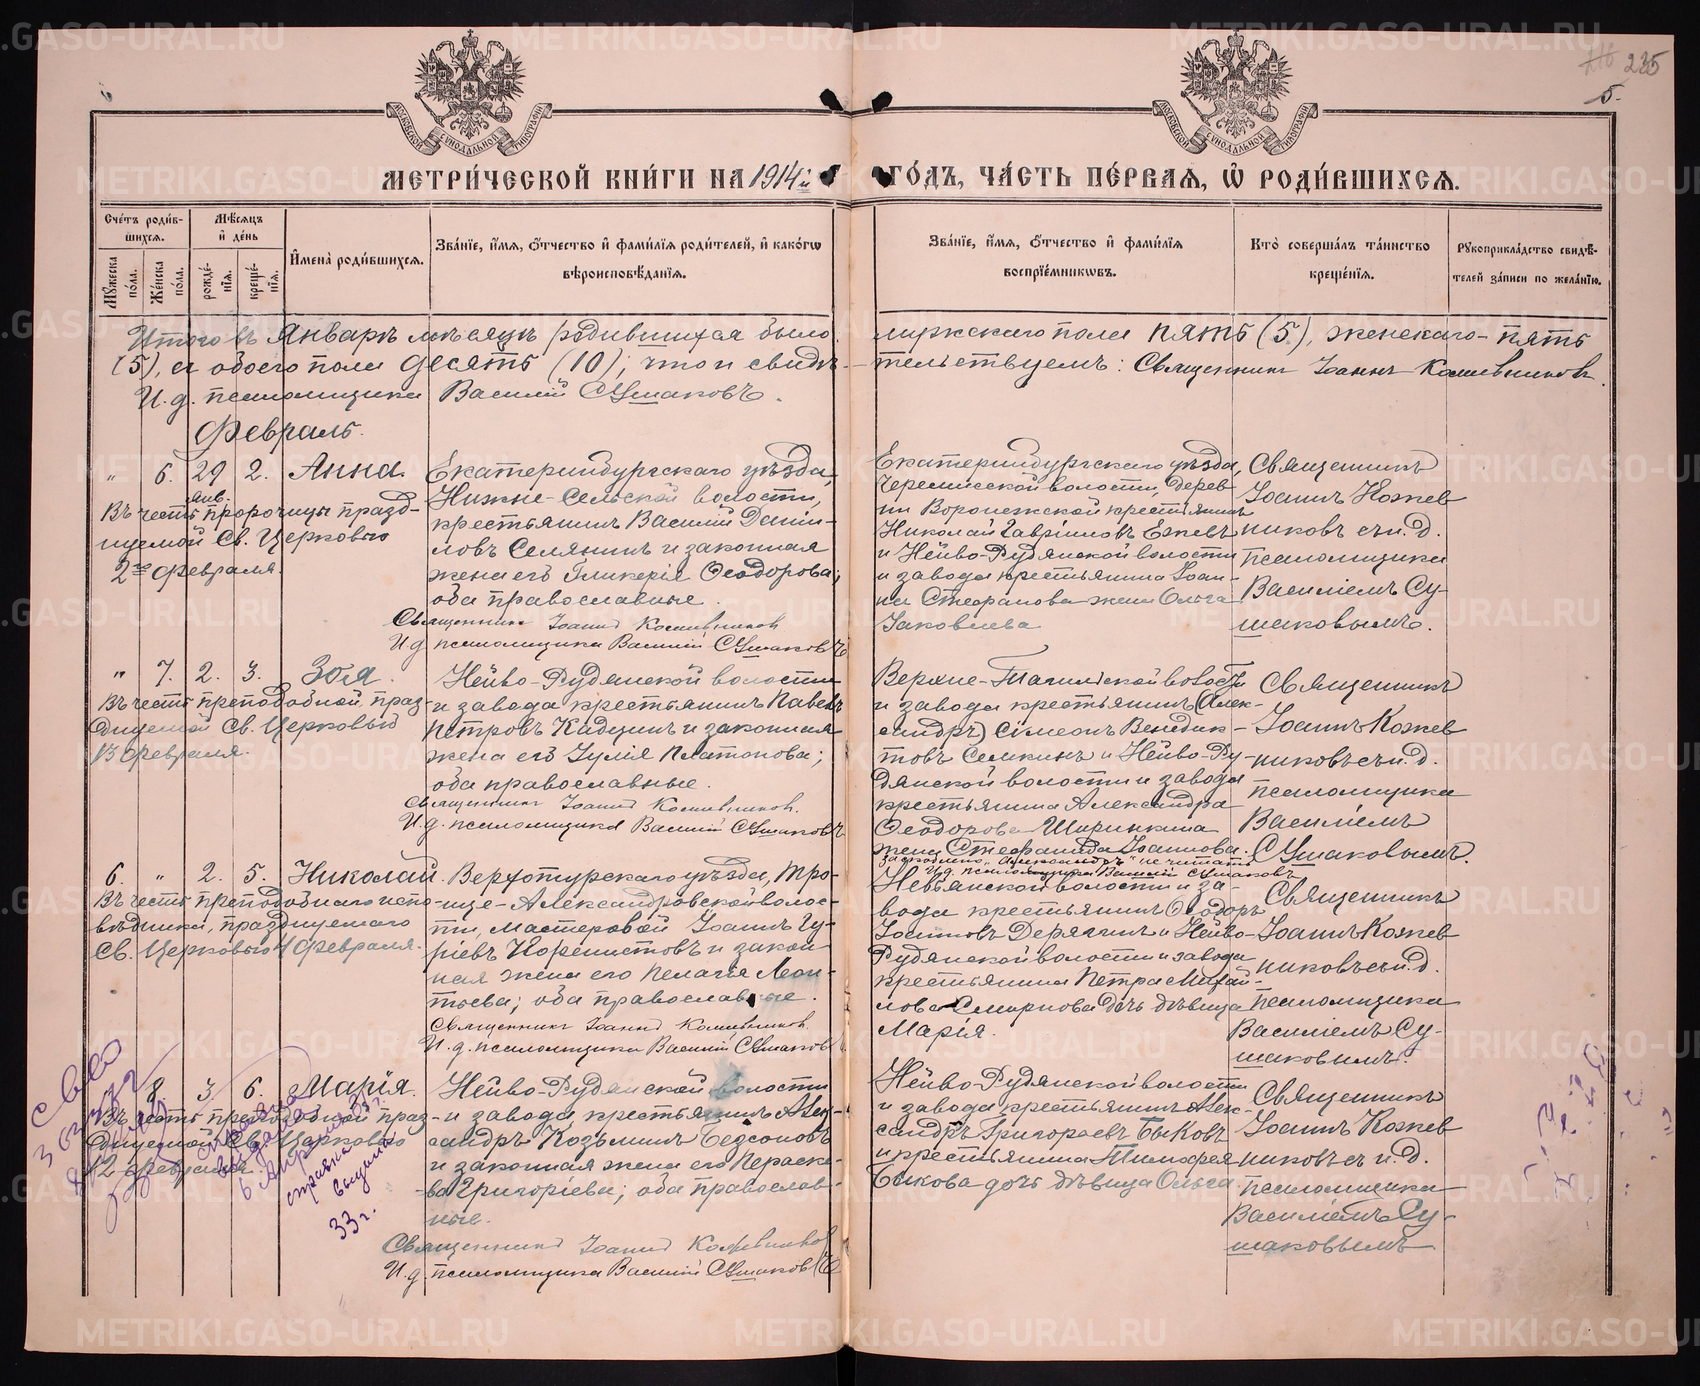 METRIKI.GASO-URAL.RU
235
5.
МОСКОВСКОЙ СУНОДАЛЬНОЙ ТИПОГРАФІИ
МЕТРИ́ЧЕСКОЙ КНИ́ГИ НА 1914 й
ГО́ДЪ, ЧА́СТЬ ПЕ́РВАЯ, Ѡ РОДИ́ВШИХСЯ.
Сче́тъ роди́в-
шихся.
Мꙋжеска по́ла.
Же́нска по́ла.
Мѣ́сяцъ и҆ де́нь
рожде́нїя.
креще́нїя.
И҆мена̀ роди́вшихся.
Зва́нїе, и҆́мя, ѻ҆́тчество и҆ фами́лїя роди́телей, и҆ како́гѡ
вѣроисповѣ́данїя.
Зва́нїе, и҆́мя, ѻ҆́тчество и҆ фами́лїя
воспрїе́мникѡвъ.
Кто̀ соверша́лъ та́инство
креще́нїя.
Рꙋкоприкла́дство свидѣ́-
телей за́писи по жела́нїю.
Итого въ Январѣ мѣсяцѣ родившихся было
(5), а обоего пола десять (10); что и свидѣ-
И. д. псаломщика Василій Сушаковъ.
мужскаго пола пять (5), женскаго - пять
тельствуемъ: Священникъ Іоаннъ Кожевниковъ.
Февраль.
" 6. 29 янв. 2. Анна.
Въ честь пророчицы празд-
нуемой Св. Церковью
2го Февраля.
Екатеринбургскаго уѣзда,
Нижне-Сельской волости,
крестьянинъ Василій Даніи-
ловъ Селянинъ и законная
жена его Гликерія Ѳеодорова;
оба православные.
Священникъ Іоаннъ Кожевниковъ
И. д. псаломщика Василій Сушаковъ
Екатеринбургскаго уѣзда,
Черемисской волости, дерев-
ни Воронежской крестьянинъ
Николай Гавріиловъ Ежевъ
и Нейво-Рудянской волости
и завода крестьянина Іоан-
на Стефанова жена Ольга
Іаковлева
Священникъ
Іоаннъ Кожев
никовъ съ и. д.
псаломщика
Василіемъ Су-
шаковымъ.
" 7. 2. 3. Зоя.
Въ честь преподобной, праз-
днуемой Св. Церковью
13 февраля.
Нейво-Рудянской волости
и завода крестьянинъ Павелъ
Петровъ Кадцинъ и законная
жена его Іулія Платонова;
оба православные.
Священникъ Іоаннъ Кожевниковъ.
И. д. псаломщика Василій Сушаковъ
Верхне-Тагильской волости
и завода крестьянинъ (Алек-
сандръ) Сімеонъ Венедик-
товъ Семкинъ и Нейво-Ру-
дянской волости и завода
крестьянина Александра
Ѳеодорова Ширинкина
жена Стефанида Іоаннова.
зачеркнуто "Александръ" не читать
И. д. псаломщика Василій Сушаковъ
Священникъ
Іоаннъ Кожев
никовъ съ и. д.
псаломщика
Василіемъ
Сушаковымъ.
6. " 2. 5. Николай.
Въ честь преподобнаго испо-
вѣдника, празднуемаго
Св. Церковью 4 февраля.
Верхотурскаго уѣзда, Тро-
ице-Александровской волос-
ти, мастеровой Іоаннъ Гу-
ріевъ Норенистовъ и закон-
ная жена его Пелагія Леон-
тьева; оба православные.
Священникъ Іоаннъ Кожевниковъ
И. д. псаломщика Василій Сушаковъ
Невьянской волости и за-
вода крестьянинъ Ѳеодоръ
Іоанновъ Дерягинъ и Нейво-
Рудянской волости и завода
крестьянина Петра Михай-
лова Смирнова дочь дѣвица
Марія.
Священникъ
Іоаннъ Кожев
никовъ съ и. д.
псаломщика
Василіемъ Су-
шаковымъ.
8. 3. 6. Марія.
Въ честь преподобной, праз-
днуемой Св. Церковью
12 февраля.
справка
выдана
33 г.
Нейво-Рудянской волости
и завода крестьянинъ Алек-
сандръ Козьминъ Бедсоновъ
и законная жена его Параске-
ва Григоріева; оба православ-
ные.
Священникъ Іоаннъ Кожевниковъ
И. д. псаломщика Василій Сушаковъ
Нейво-Рудянской волости
и завода крестьянинъ Алек-
сандръ Григорьевъ Быковъ
и крестьянина Тимофея
Быкова дочь дѣвица Ольга.
Священникъ
Іоаннъ Кожев
никовъ съ и. д.
псаломщика
Василіемъ Су-
шаковымъ